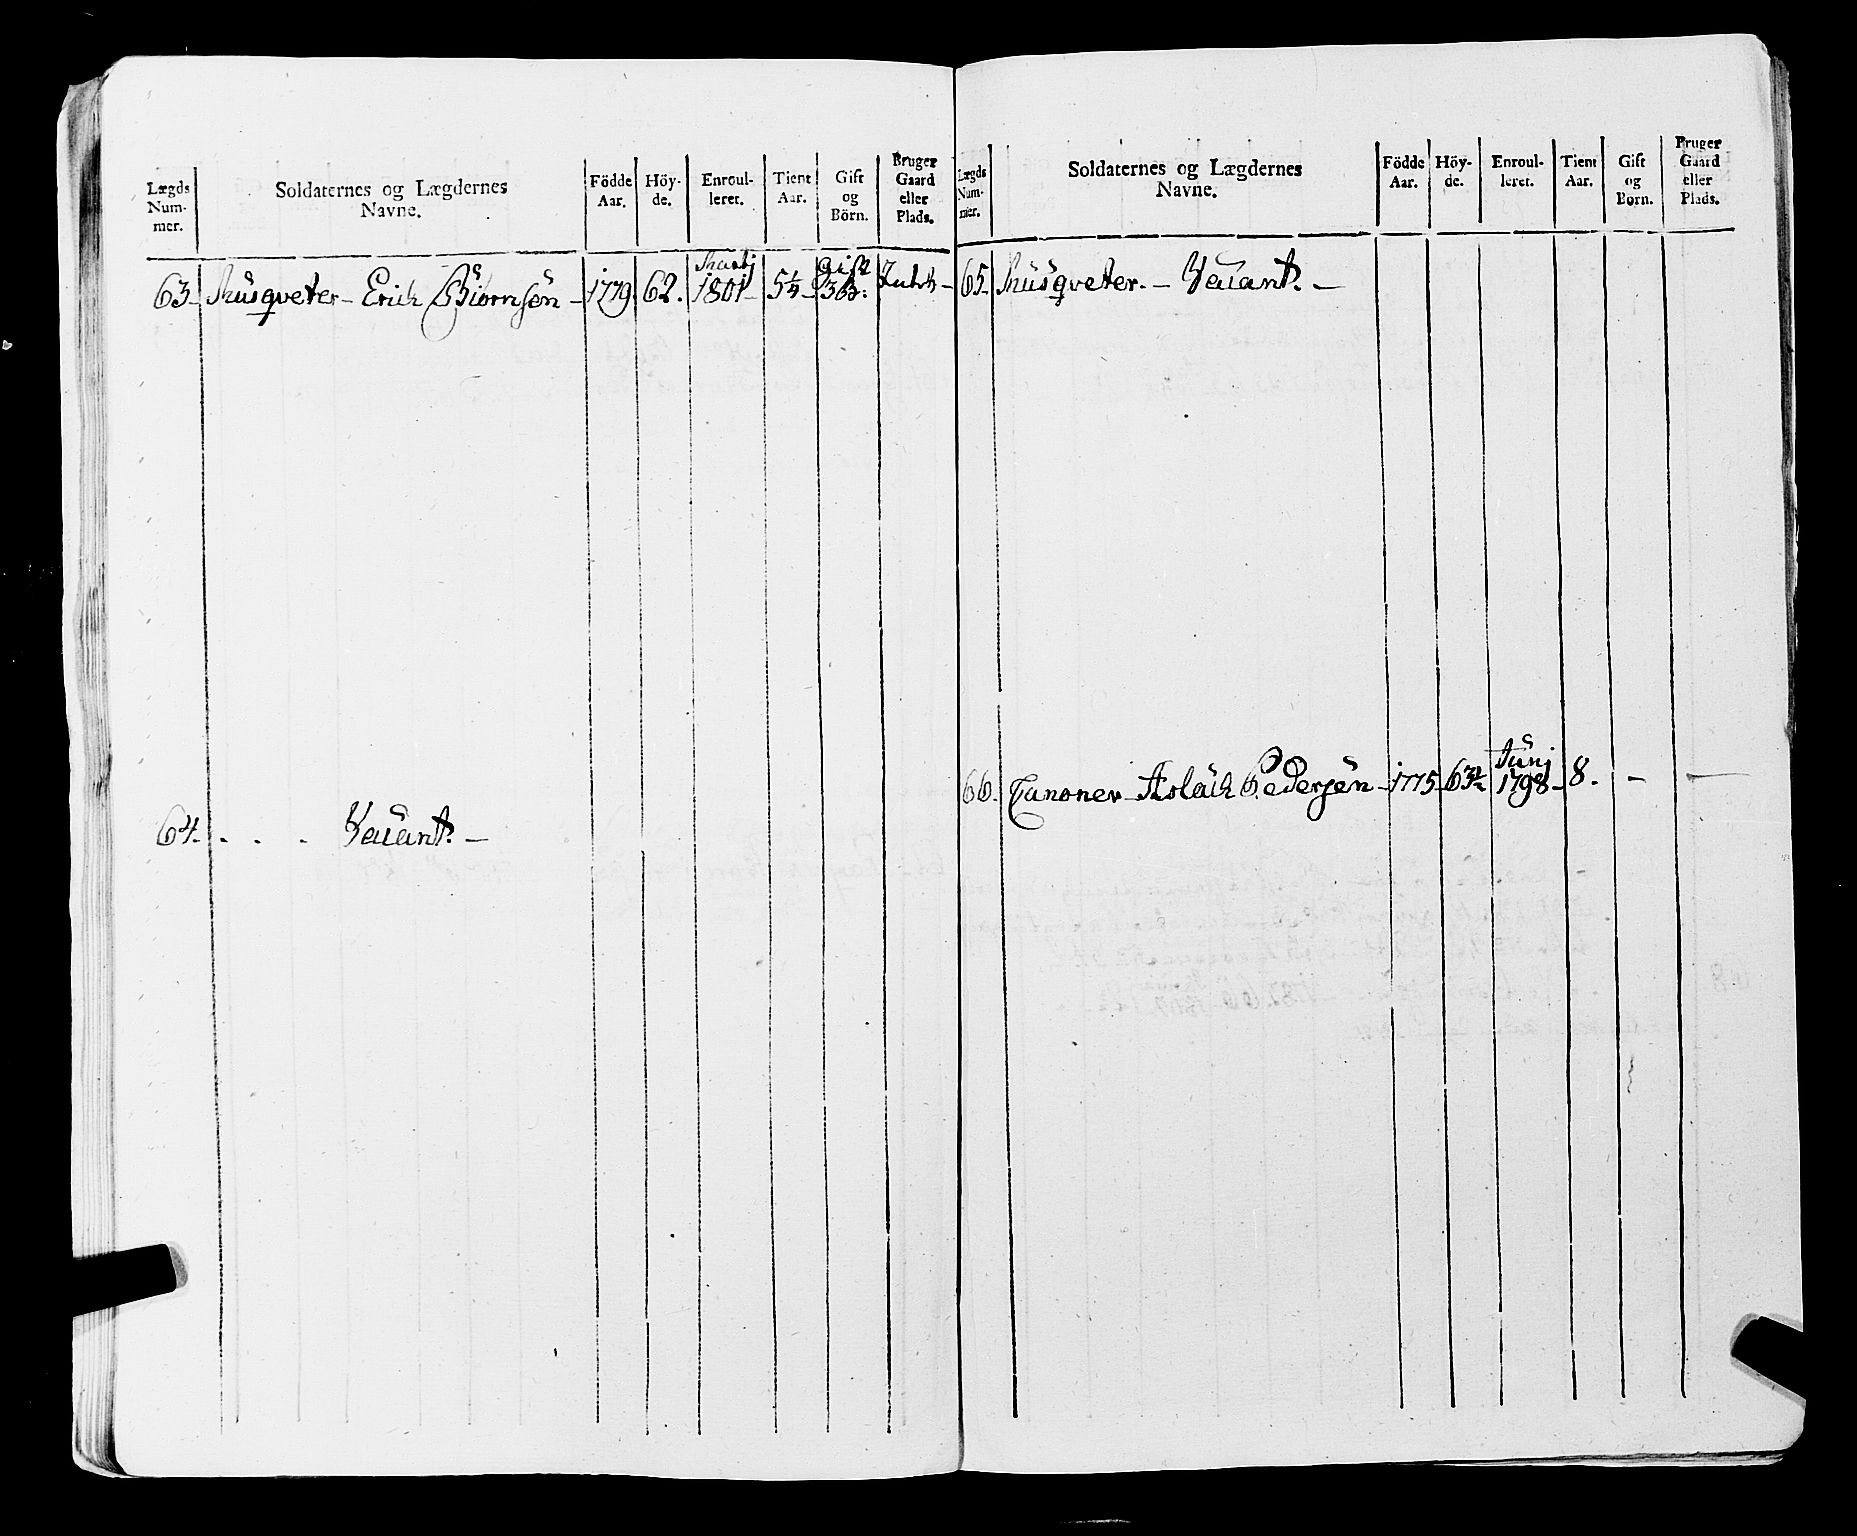 Lægds Num- mer. | Soldaternes og Lægdernes Navne. | Födde Aar. | Höy- de. | Enroul- leret. | Tient Aar. | Gift og Börn. | Bruger Gaard eller Plads.
Martj Gift
63 Musqveter – Erich Biørnsøn – 1779. 62. 1801 – 5¼ – 3 b:
64. . . . Vacant. –
Lægds Num- mer. | Soldaternes og Lægdernes Navne. | Födde Aar. | Höy- de. | Enroul- leret. | Tient Aar. | Gift og Børn. | Bruger Gaard eller Plads.
65. Musqveter. – Vacant. –
Junj
66. Canoner – Aslach Pedersøn – 1775 – 63¼ 1798 – 8. – –